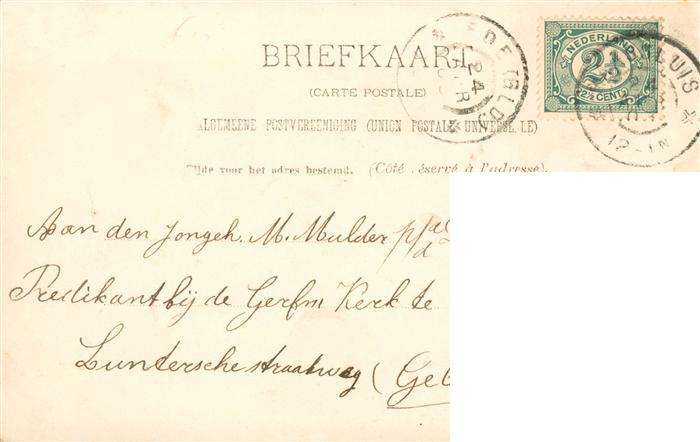 BRIEFKAART
(CARTE POSTALE)
ALGEMEENE POSTVEREENIGING (UNION POSTALE UNIVERSELLE)
Zijde voor het adres bestemd. (Côté réservé à l'adresse).
NEDERLAND
2½
(2½ CENT)
EDE (GLD)
24
LUIS
12-1N
Aan den Jongeh. M. Mulder p/a
Predikant bij de Gerefm Kerk te
Luntersche straatweg (Gel